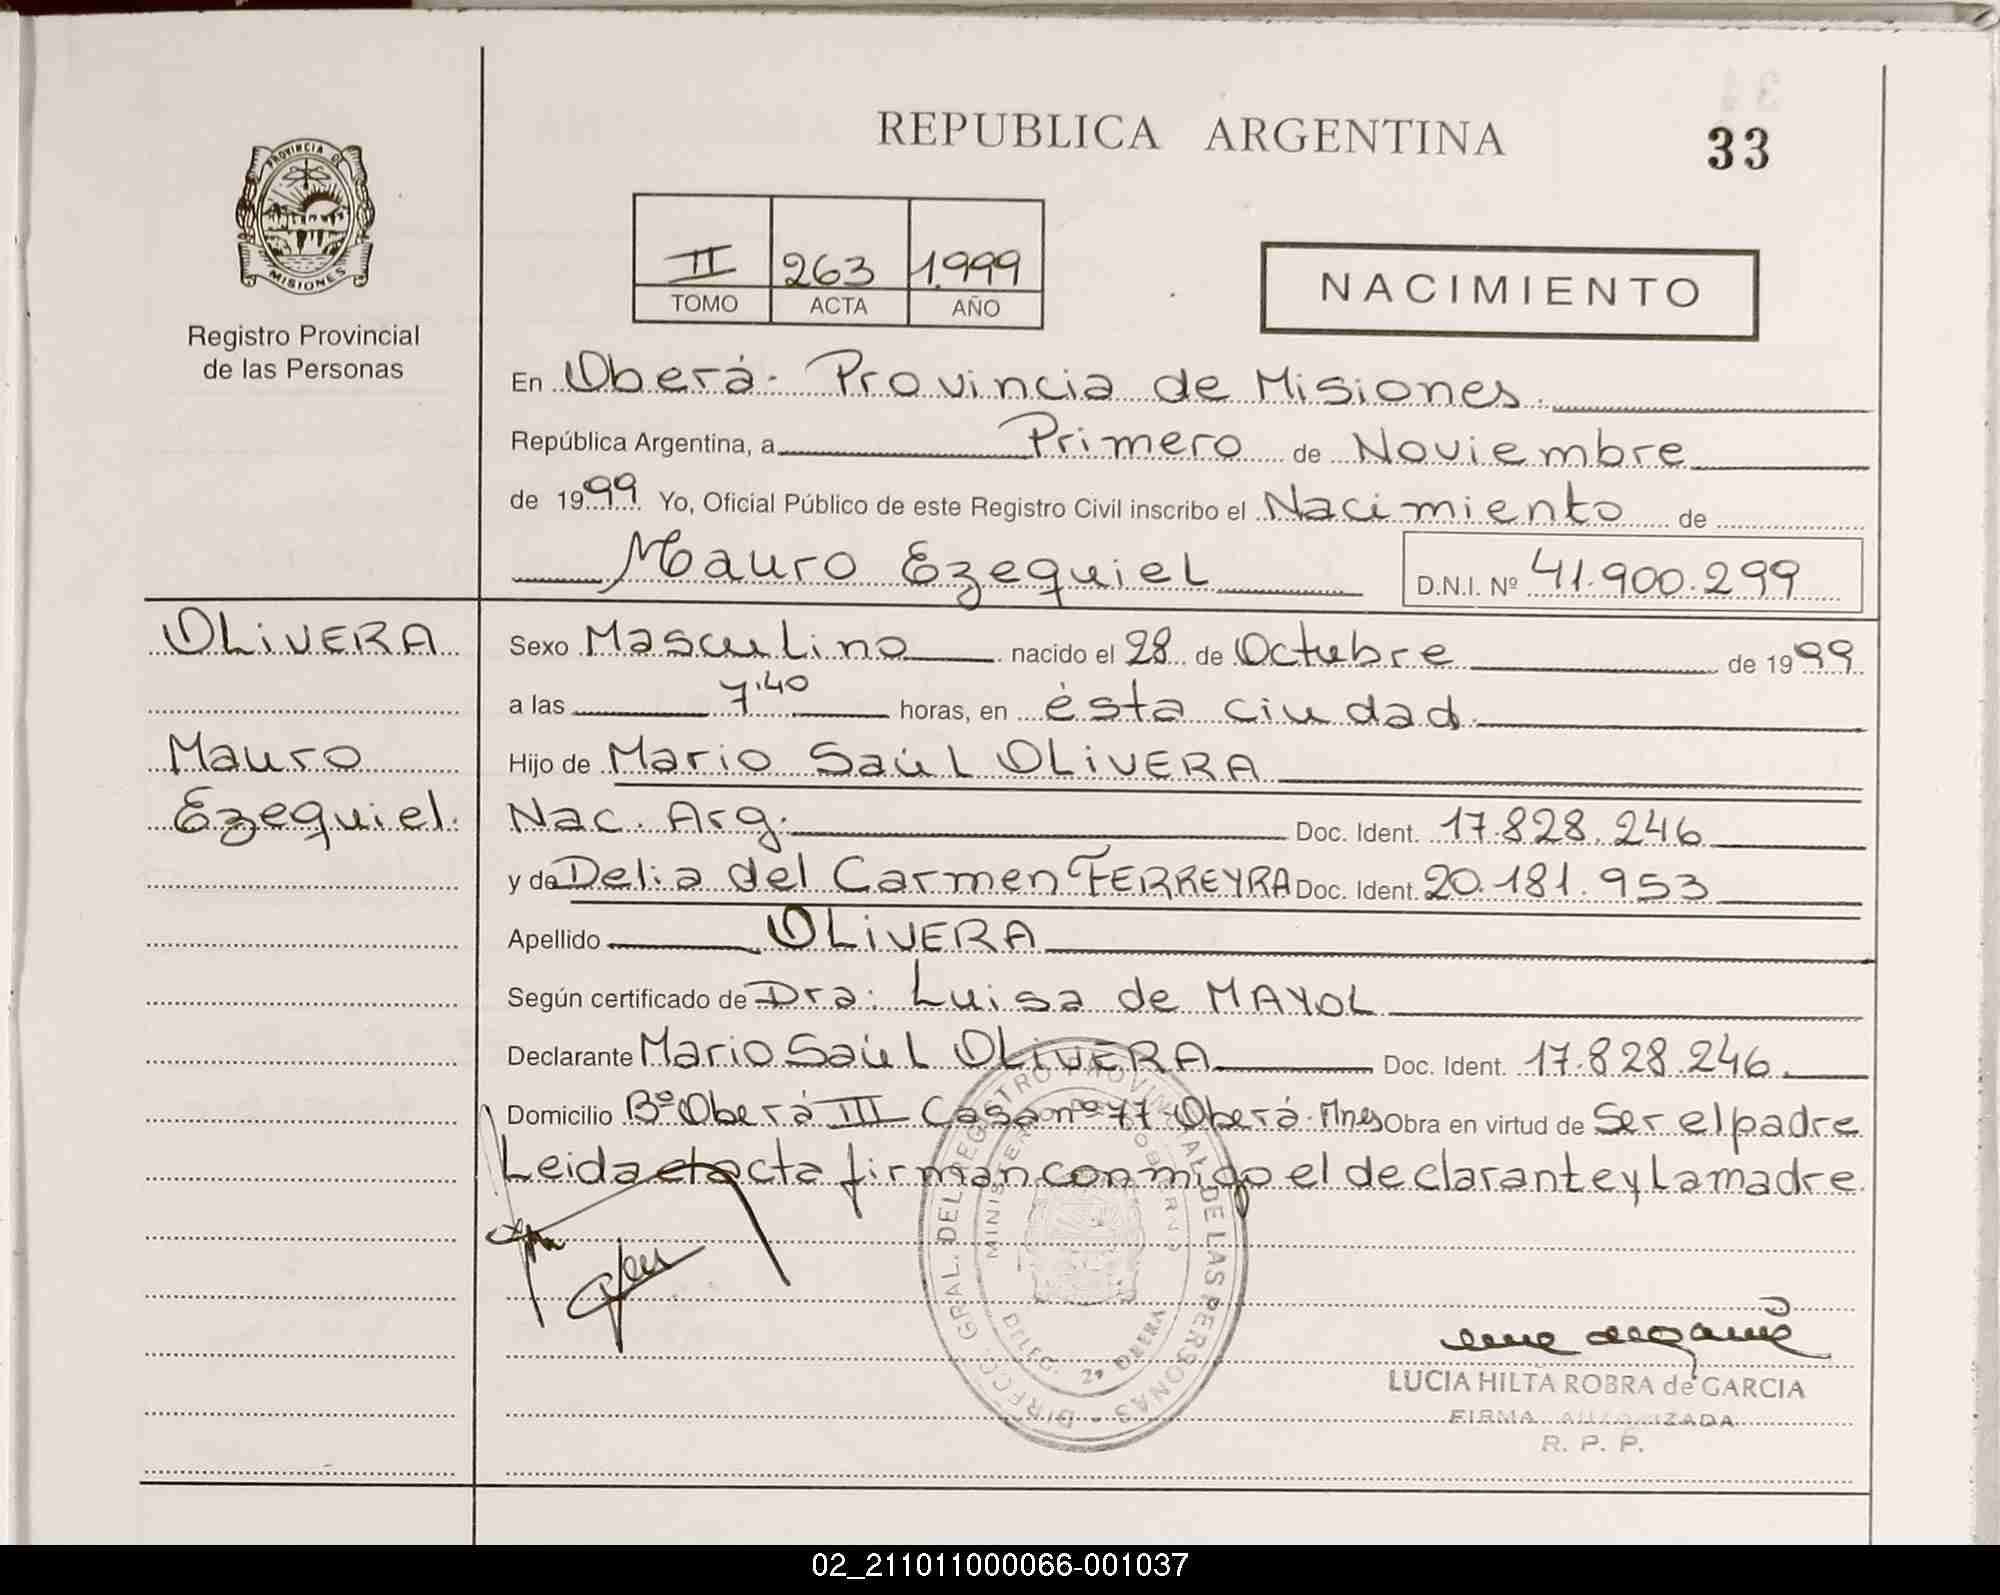 REPUBLICA ARGENTINA
33
PROVINCIA DE
MISIONES
Registro Provincial
de las Personas
II 263 1.999
TOMO ACTA AÑO
NACIMIENTO
En Oberá - Provincia de Misiones.
República Argentina, a Primero de Noviembre
de 1999 Yo, Oficial Público de este Registro Civil inscribo el Nacimiento de
Mauro Ezequiel D.N.I. Nº 41.900.299
OLiVERA
Mauro
Ezequiel.
Sexo Masculino nacido el 28 de Octubre de 1999
a las 7'40 horas, en ésta ciudad.
Hijo de Mario Saúl OLiVERA
Nac. Arg. Doc. Ident. 17.828.246
y de Delia del Carmen FERREYRA Doc. Ident. 20.181.953
Apellido OLiVERA
Según certificado de Dra: Luisa de MAYOL
Declarante Mario Saúl OLiVERA Doc. Ident. 17.828.246
Domicilio Bº Oberá III Casa nº 77 Oberá - Mnes Obra en virtud de Ser el padre
Leida el acta firman conmigo el declarante y La madre.
DIRECC. GRAL. DEL REGISTRO PROVINCIAL DE LAS PERSONAS
MINISTERIO DE GOBIERNO
DELEG. 2ª OBERA
LUCIA HILTA ROBRA de GARCIA
FIRMA AUTORIZADA
R. P. P.
02_211011000066-001037